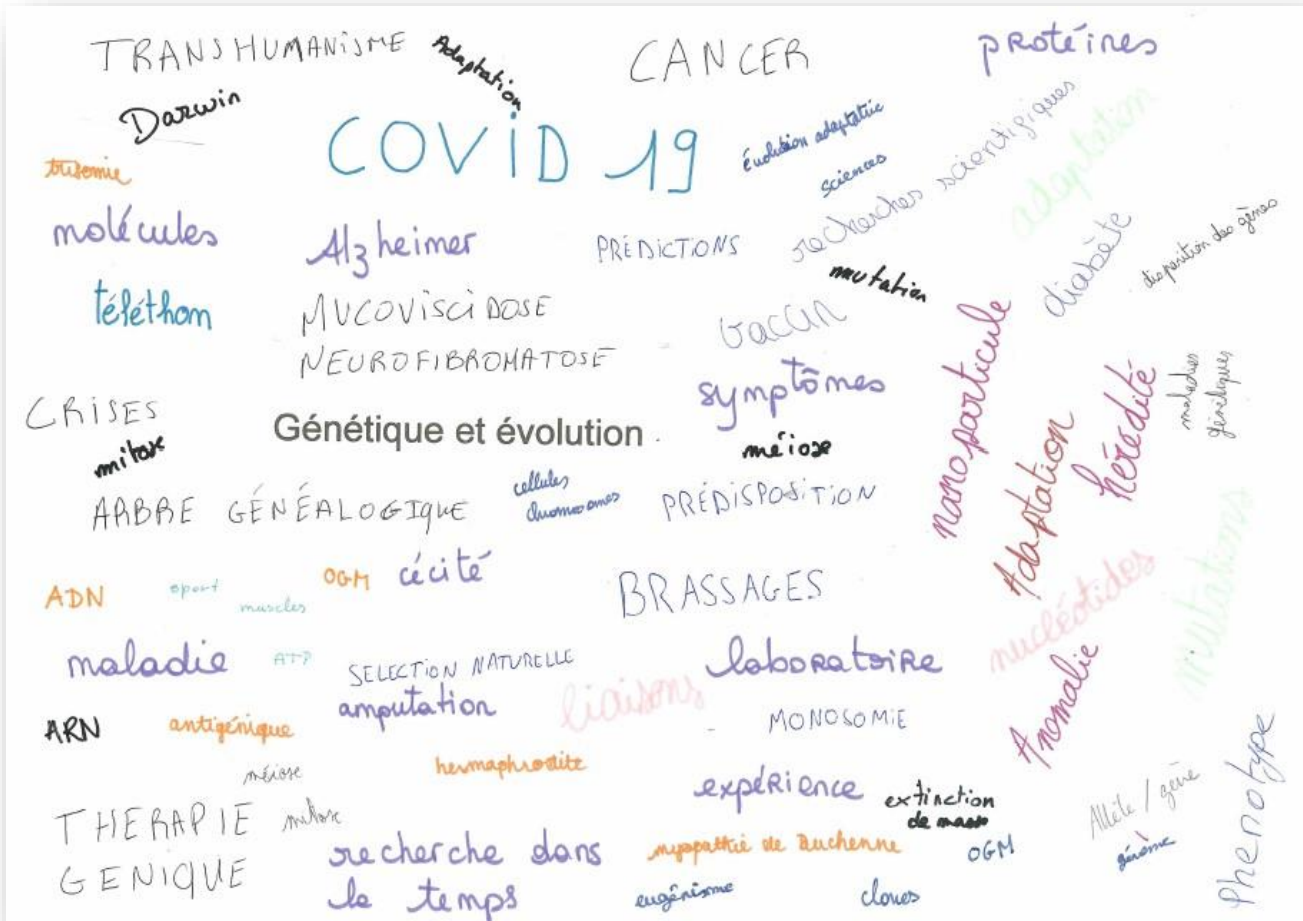 TRANSHUMANISME
Adaptation
CANCER
protéines
Darwin
COVID 19
évolution adaptative
sciences
recherches scientifiques
adaptation
trisomie
molécules
Alzheimer
PRÉDICTIONS
mutation
diabète
disparition des gènes
téléthon
MUCOVISCIDOSE
NEUROFIBROMATOSE
vaccin
symptômes
nanoparticule
hérédité
maladies
génétiques
CRISES
mitose
Génétique et évolution
méiose
Adaptation
ARBRE GÉNÉALOGIQUE
cellules
chromosomes
PRÉDISPOSITION
ADN
sport
muscles
OGM
cécité
BRASSAGES
nucléotides
mutations
maladie
ATP
SELECTION NATURELLE
laboratoire
amputation
liaisons
Anomalie
ARN
antigénique
MONOSOMIE
méiose
hermaphrodite
expérience
extinction
de masse
Allèle / gène
génome
Phenotype
THERAPIE
GENIQUE
mitose
recherche dans
le temps
myopathie de Duchenne
OGM
eugénisme
clones